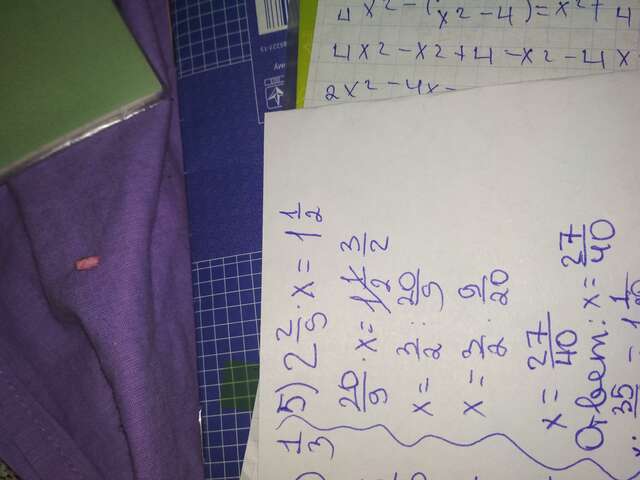 4x² - (x² - 4) = x² + 4
4x² - x² + 4 - x² - 4x
2x² - 4x -
5) 2 2/9 · x = 1 1/2
20/9 · x = 1 1/2 3/2
x = 3/2 : 20/9
x = 3/2 · 9/20
x = 27/40
Ответ: x = 27/40
1/3)